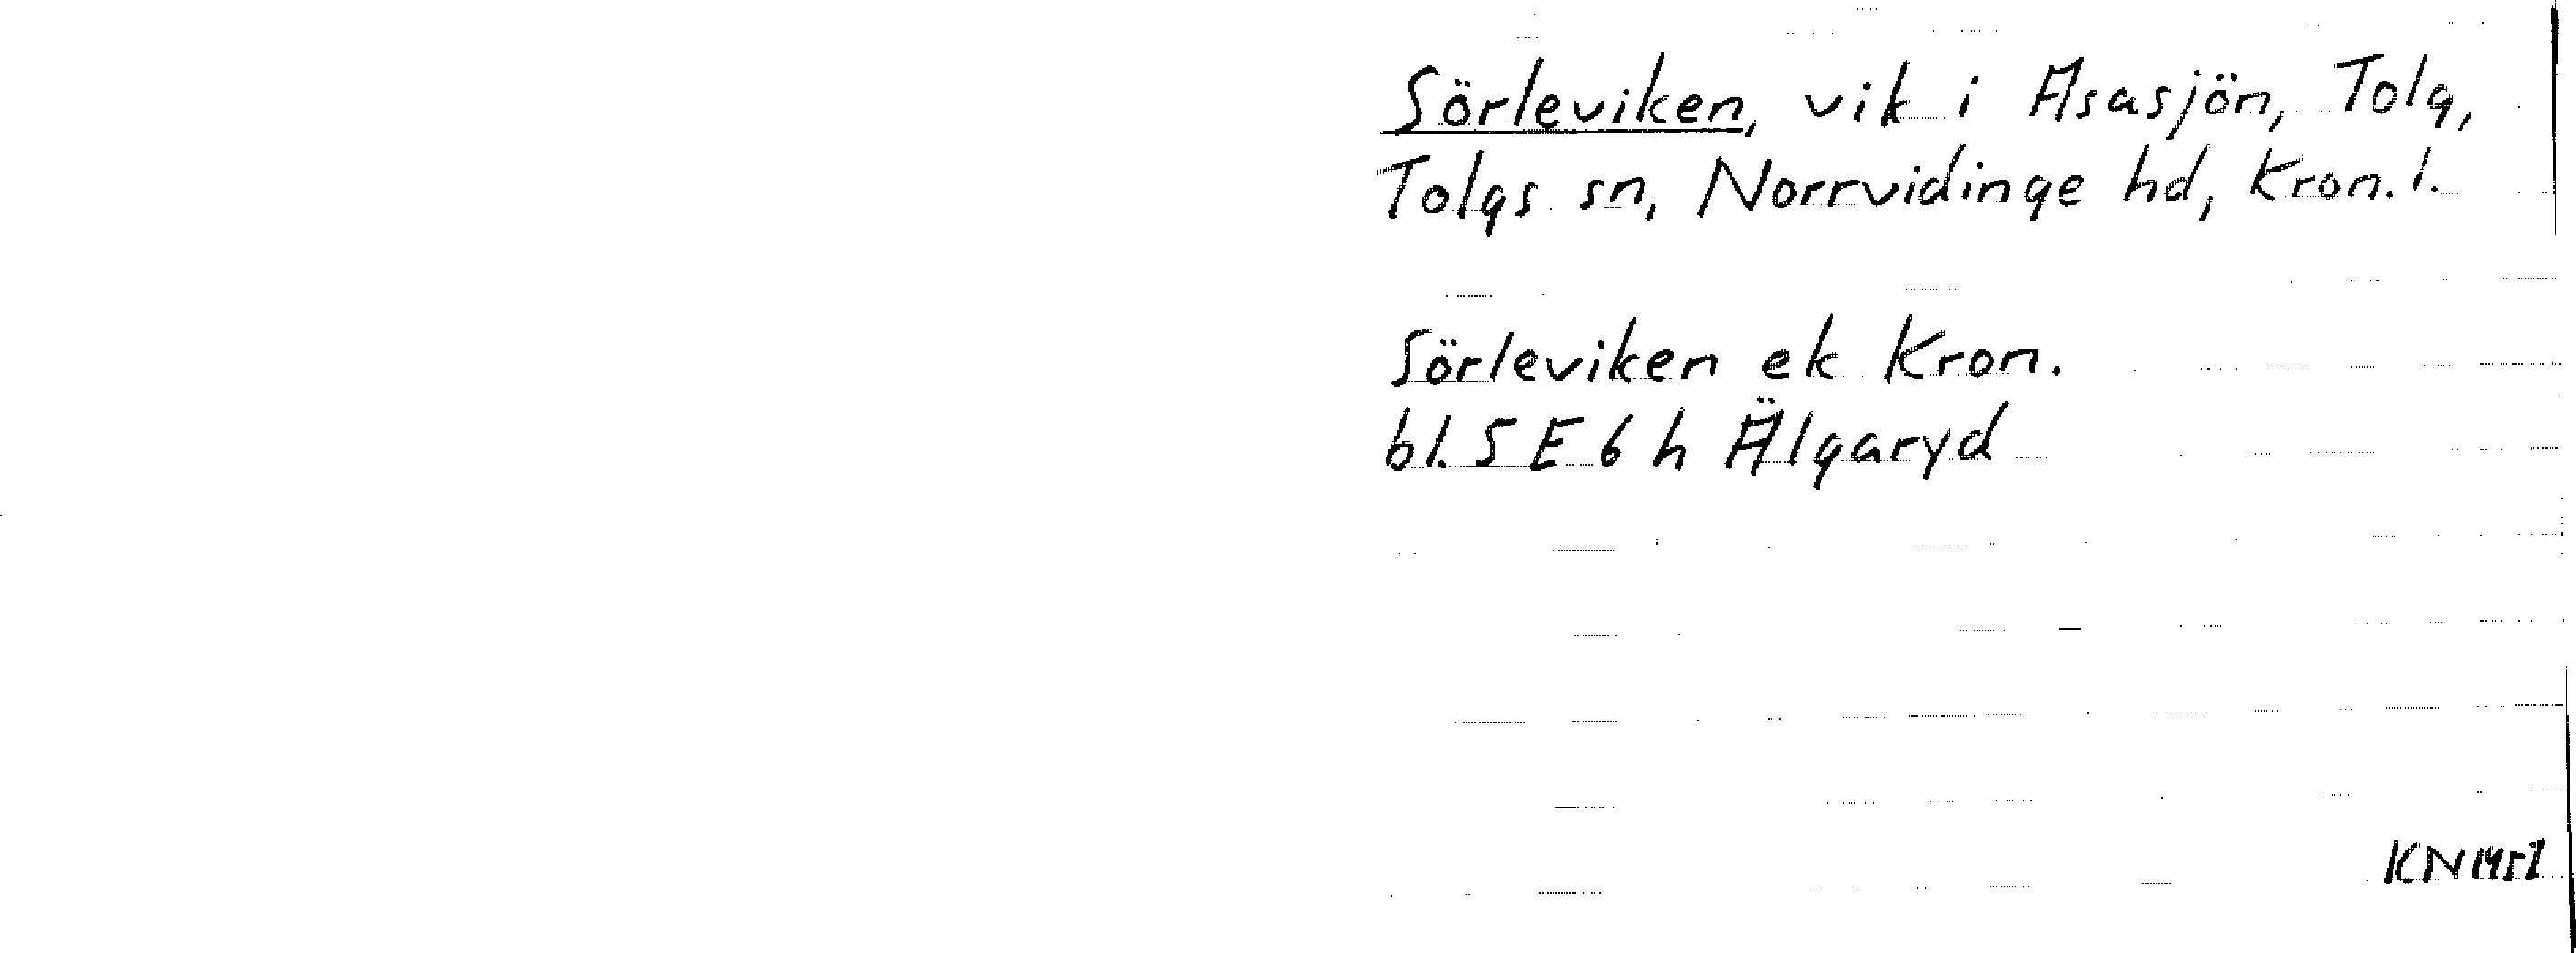 Sörleviken, vik i Asasjön, Tolg,
Tolgs sn, Norrvidinge hd, Kron. l.
Sörleviken ek Kron.
bl. 5 E 6 h Älgaryd